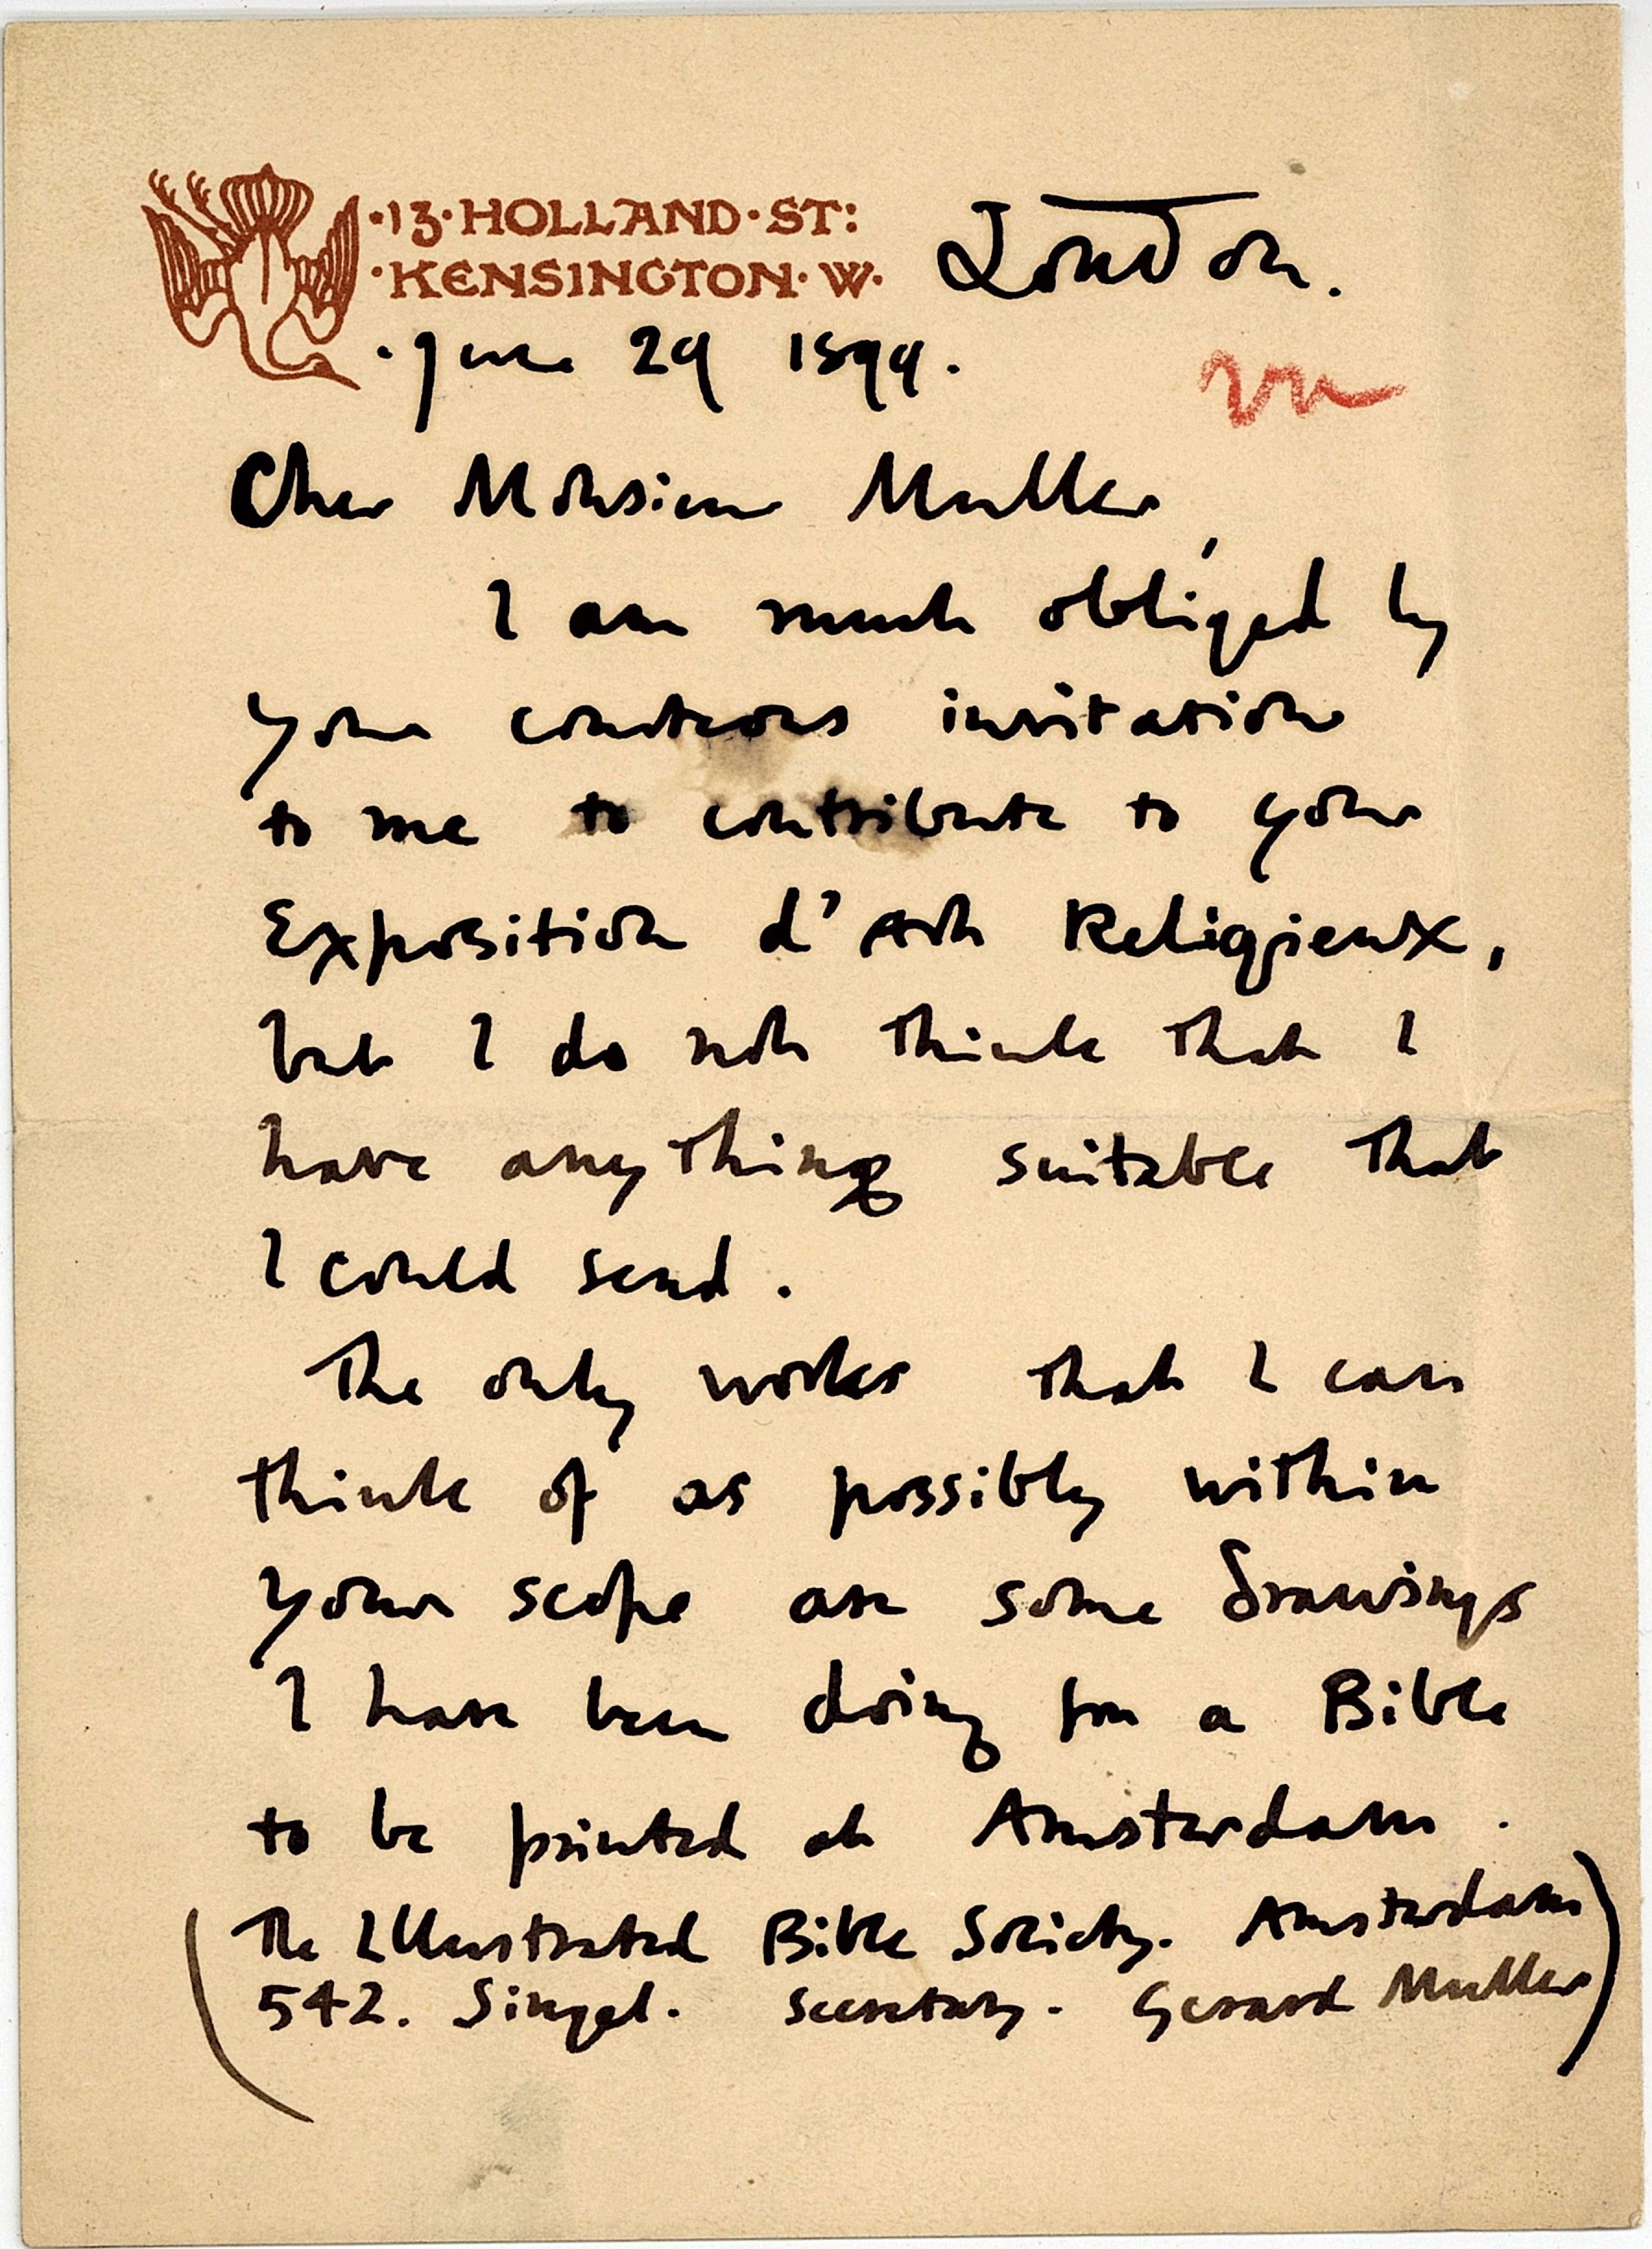 ·13·HOLLAND·ST: London.
·KENSINGTON·W·
·June 29 1899.
Cher Monsieur Muller,
I am much obliged by
your courteous invitation
to me to contribute to your
Exposition d'Art Religieux,
but I do not think that I
have anything suitable that
I could send.
The only works that I can
think of as possibly within
your scope are some drawings
I have been doing for a Bible
to be printed at Amsterdam.
(The Illustrated Bible Society. Amsterdam
542. Singel. Secretary. Gerard Muller)